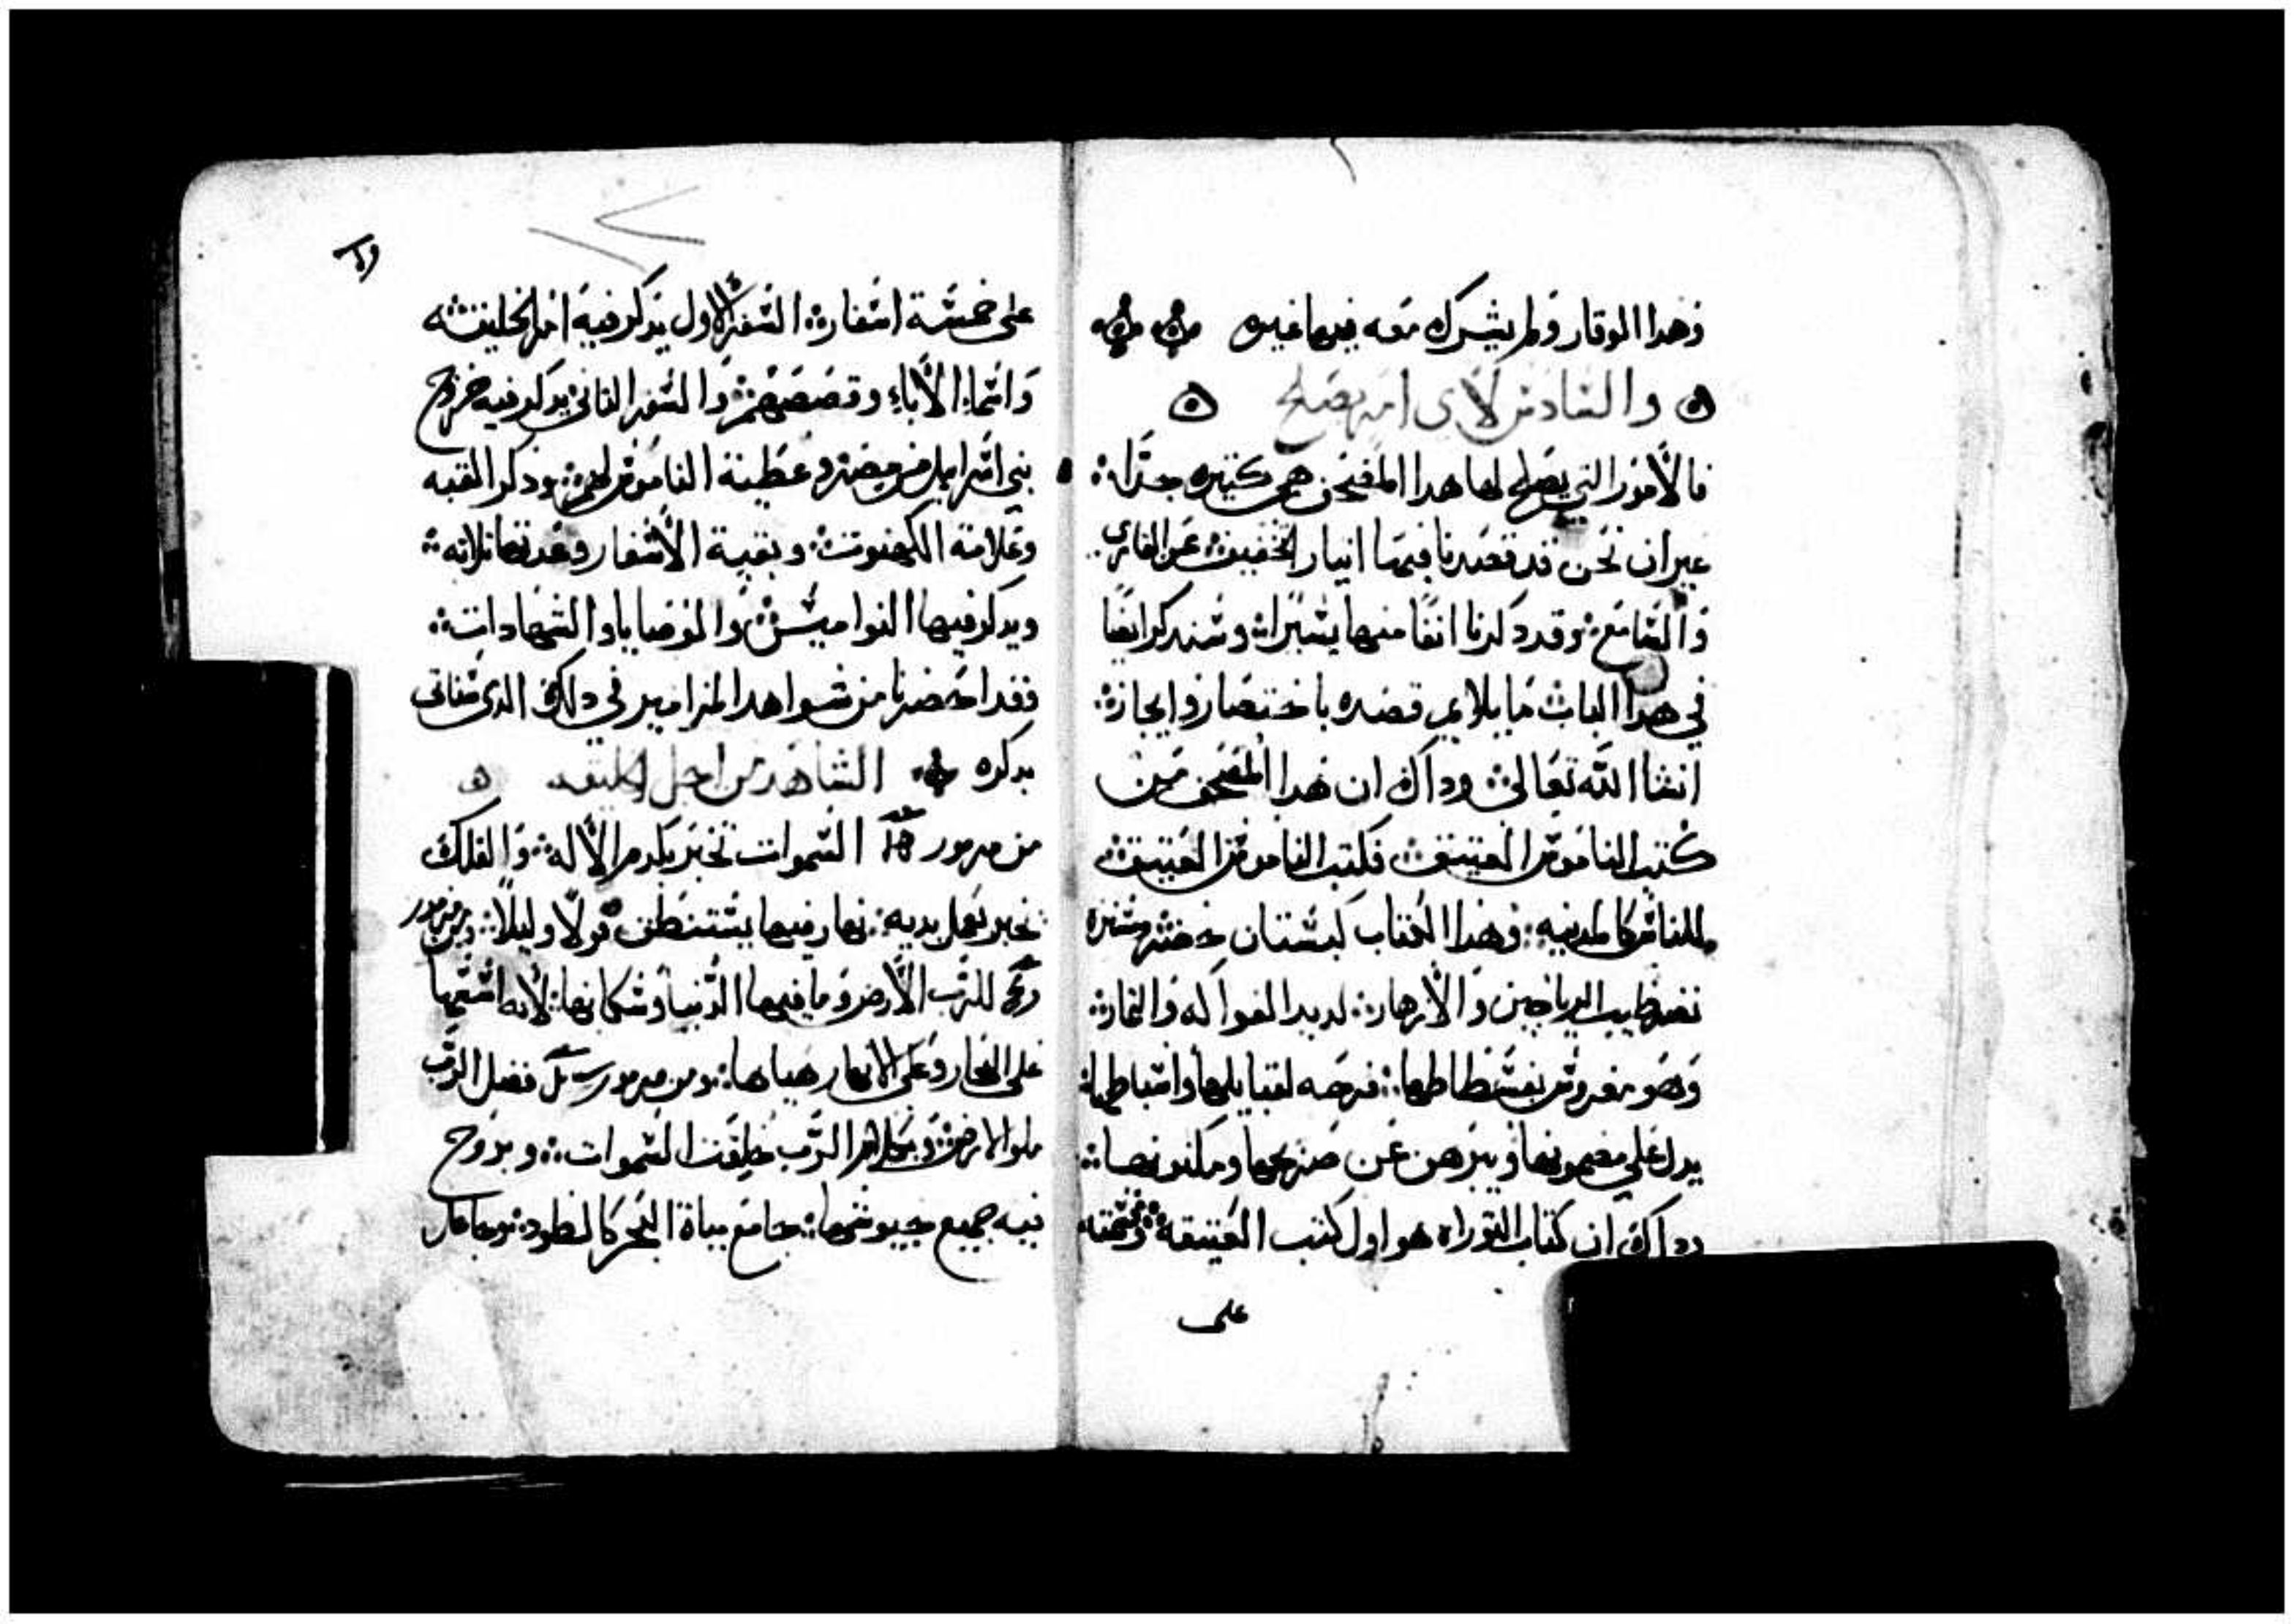 وهدا الوقار ولم يشرك معه فيها غيره
والسادس لاي امر يصلح
فالأمور التي يصلح لها هدا المصحف هي كتيره جدًا
غير ان نحن قد قصدنا فيها اتيار التخفيف عن القاري
والسامع وقد دكرنا انفًا منها يسيرا وسندكر ايضًا
في هدا الباب ما يلايم قصده باختصار وايجاز
انشا الله تعالى وداك ان هدا المصحف من
كتب الناموس العتيق فكتب الناموس العتيق
للناس كالمدينه وهدا الكتاب كبستان
طيب الرياحين والأزهار لديد الفواكه والثمار
وهو مفروش
يدل على مضمونها ويبرهن عن
وداك ان كتاب التوراه هو اول كتب العتيقه وقسمته
على
على خمسة اسفار السفر الاول يدكر فيه امر الخليقه
واسماء الأباء وقصصهم والسفر الثاني يدكر فيه خروج
بني اسرايل من مصر وعطية الناموس لهم ودكر القبه
وعلامة الكهنوت وبقية الأسفار وعدتها تلاته
ويدكر فيها النواميس والوضايا والشهادات
فقد احضرنا من شواهد المزامير في دلك الدي
بدكره الشاهد من اجل الخليقه
من مزمور السموات تخبر بكرم الأله والفلك
تخبر بعمل يديه نهار فيها يستنطق قولًا وليلًا ومن مزمور
للرب الأرض وما فيها الدنيا وسكانها لأنه اسسها
على البحار وعلى الانهار هياها ومن مزمور فضل الرب
ملوا الارض وبكلام الرب خلقت السموات وبروح
فيه جميع جيوشها جامع مياة البحر كالطود وجاعل